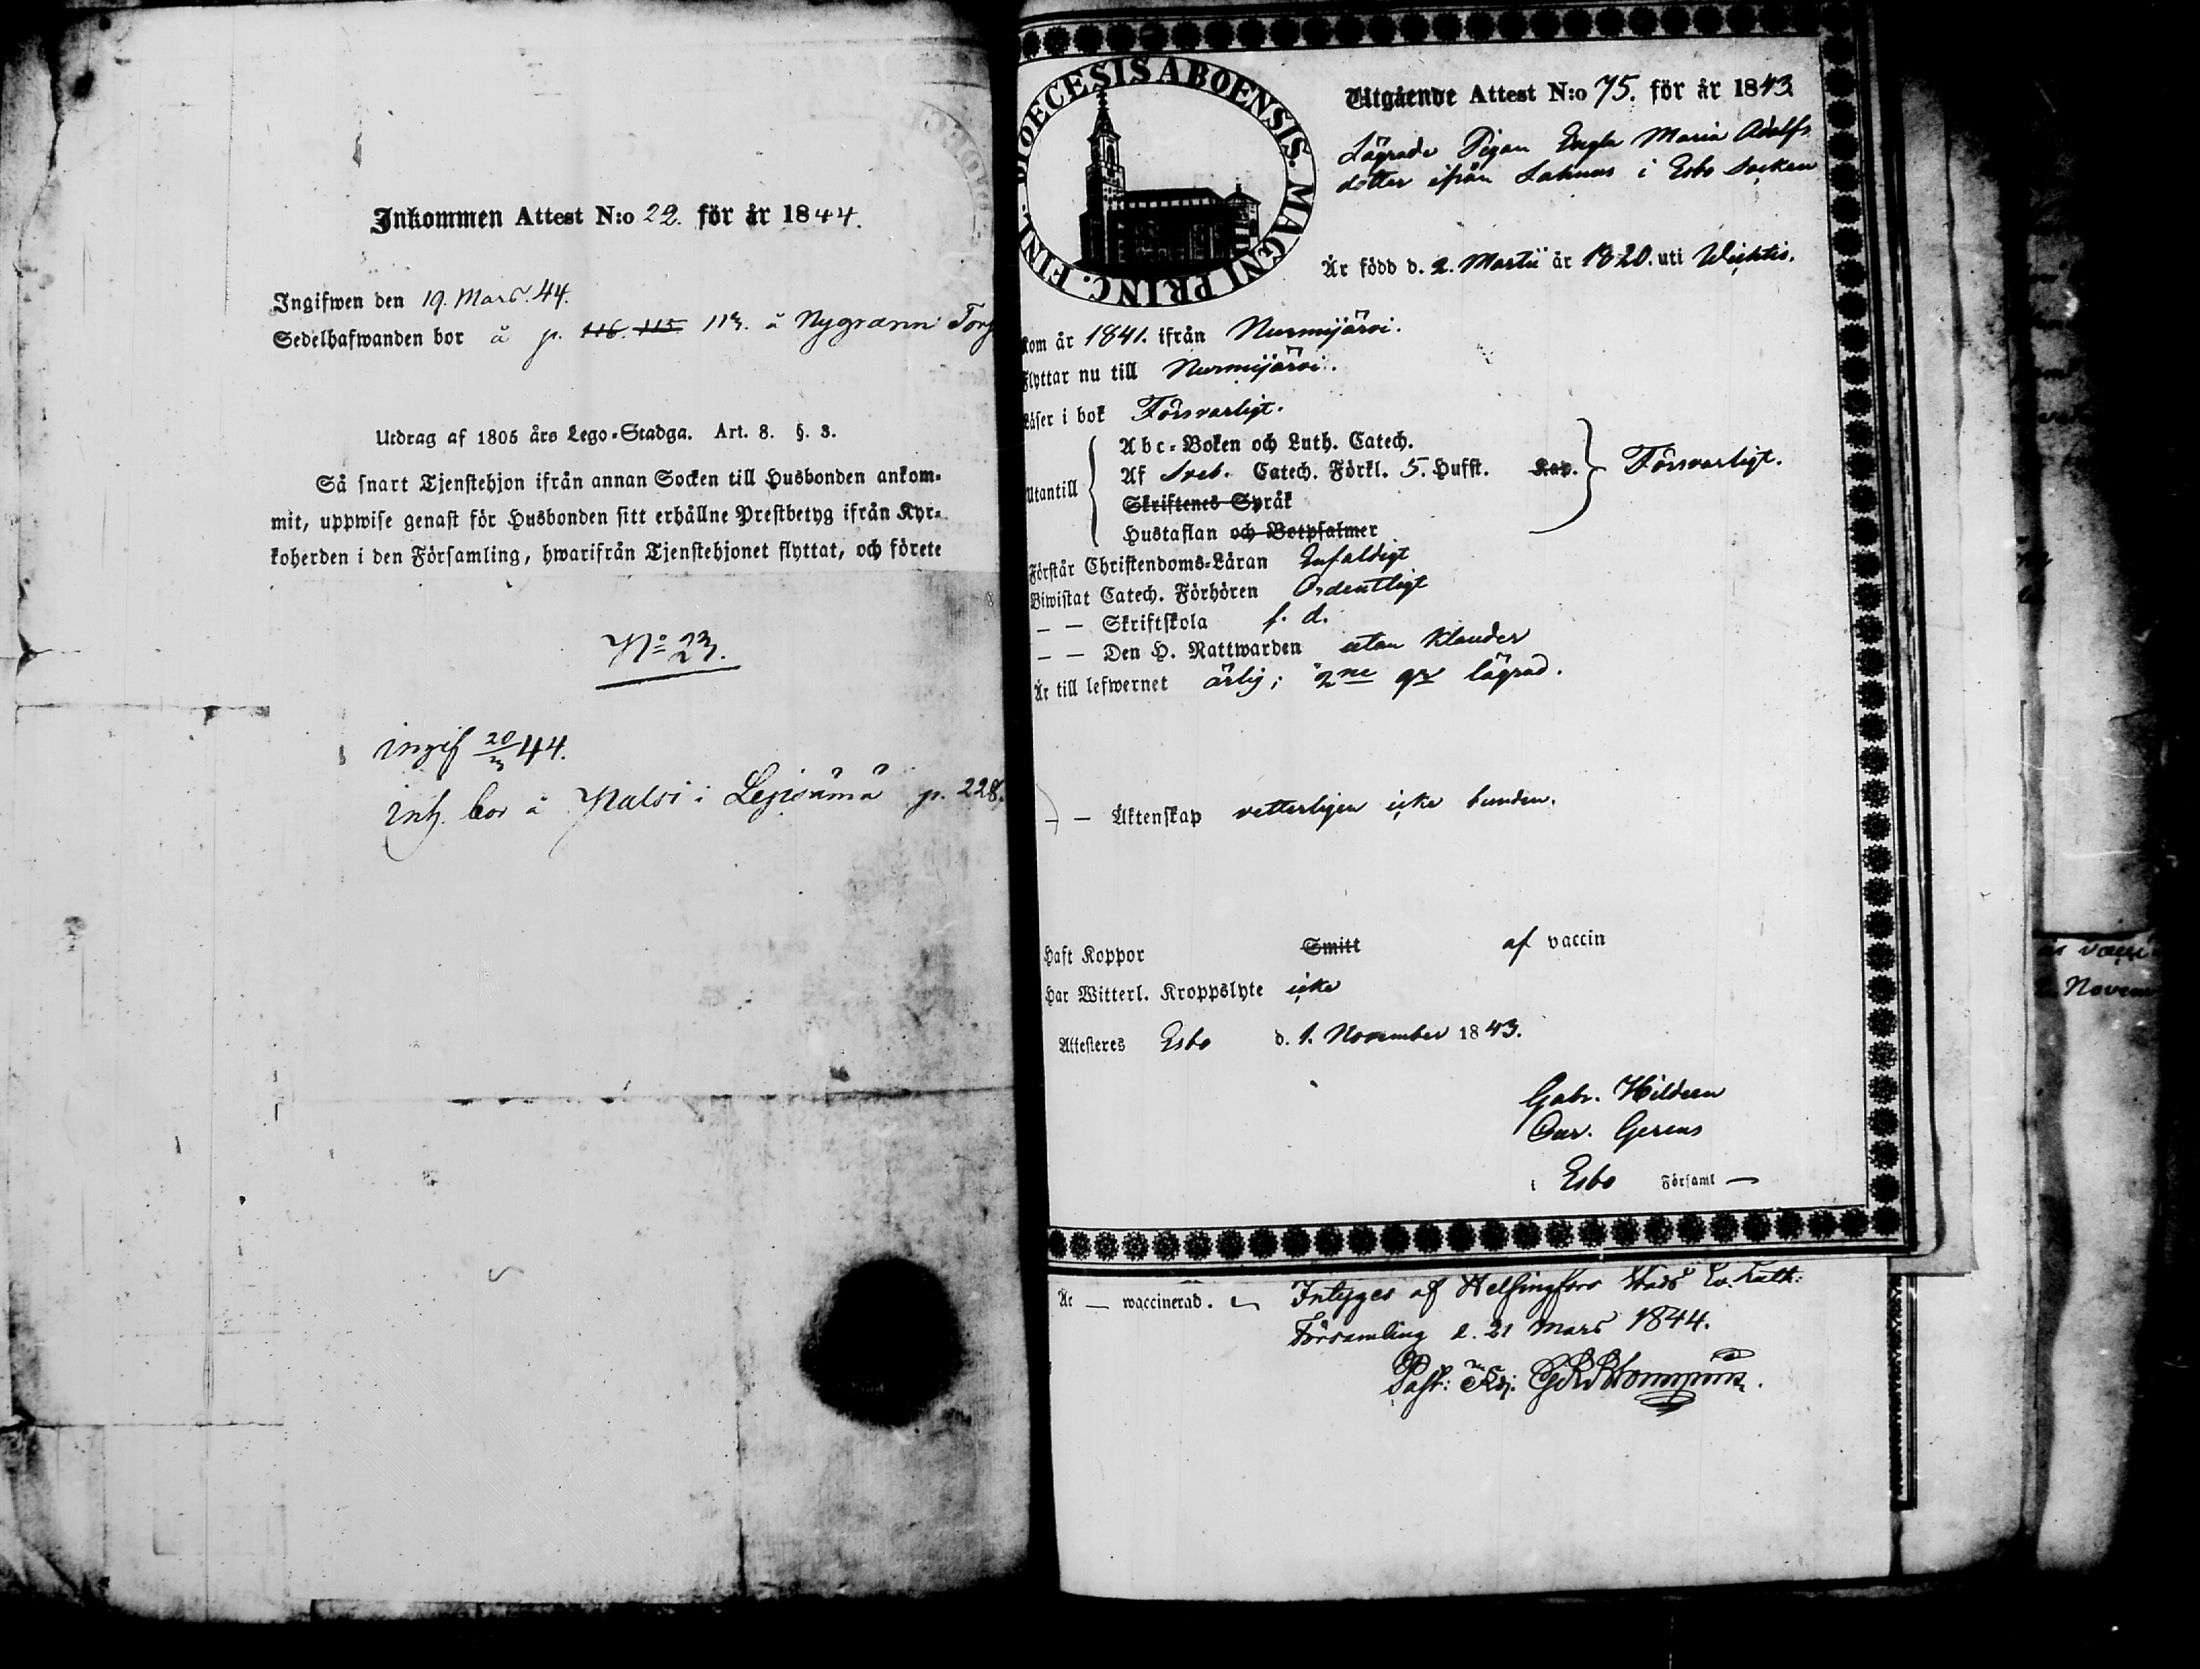 Inkommen Attest N:o 22. för år 1844.
Ingifwen den 19. Mars. 44.
Sedelhafwanden bor å p. 116. 115. 113. å Nygrann Torp
Utdrag af 1805 års Lego-Stadga. Art. 8. §. 3.
Så snart Tjenstehjon ifrån annan Socken till Husbonden ankom-
mit, uppwise genast för Husbonden sitt erhållne Prestbetyg ifrån Kyr-
koherden i den Församling, hwarifrån Tjenstehjonet flyttat, och förete
N:o 23.
ingif 20/3 44.
inh. bor å Paloi i Lepsämä p. 228.
DIOECESIS ABOENSIS. MAGNI PRINC. FINL.
Utgående Attest N:o 75. för år 1843
Lägrade Pigan Engla Maria Adolfs
dotter ifrån Lahnus i Esbo Socken
Är född d. 2. Martii år 1820. uti Wichtis.
Kom år 1841. ifrån Nurmijärvi.
Flyttar nu till Nurmijärvi.
Läser i bok Försvarligt.
Utantill
Abc-Boken och Luth. Catech.
Af Sveb. Catech. Förkl. 5. Hufst. Kap. Försvarligt.
Skriftenes Språk
Hustaflan och Botpsalmer
Förstår Christendoms-Läran Enfaldigt
Biwistat Catech. Förhören Ordentligt
— — Skriftskola f. d.
— — Den H. Nattwarden utan klander
Är till lefwernet ärlig; 2ne gr lägrad.
— — Äktenskap vetterligen icke bunden.
Haft Koppor Smitt af vaccin
Har Witterl. Kroppslyte icke
Attesteres Esbo d. 1. November 1843.
Gabr. Hildeen
Cur. Gerens
i Esbo Församl —
Är — waccinerad. Intyges af Helsingfors Stads Ev. Luth:
Församling d. 21 Mars 1844.
Past: Adj.
är vacci
Novem